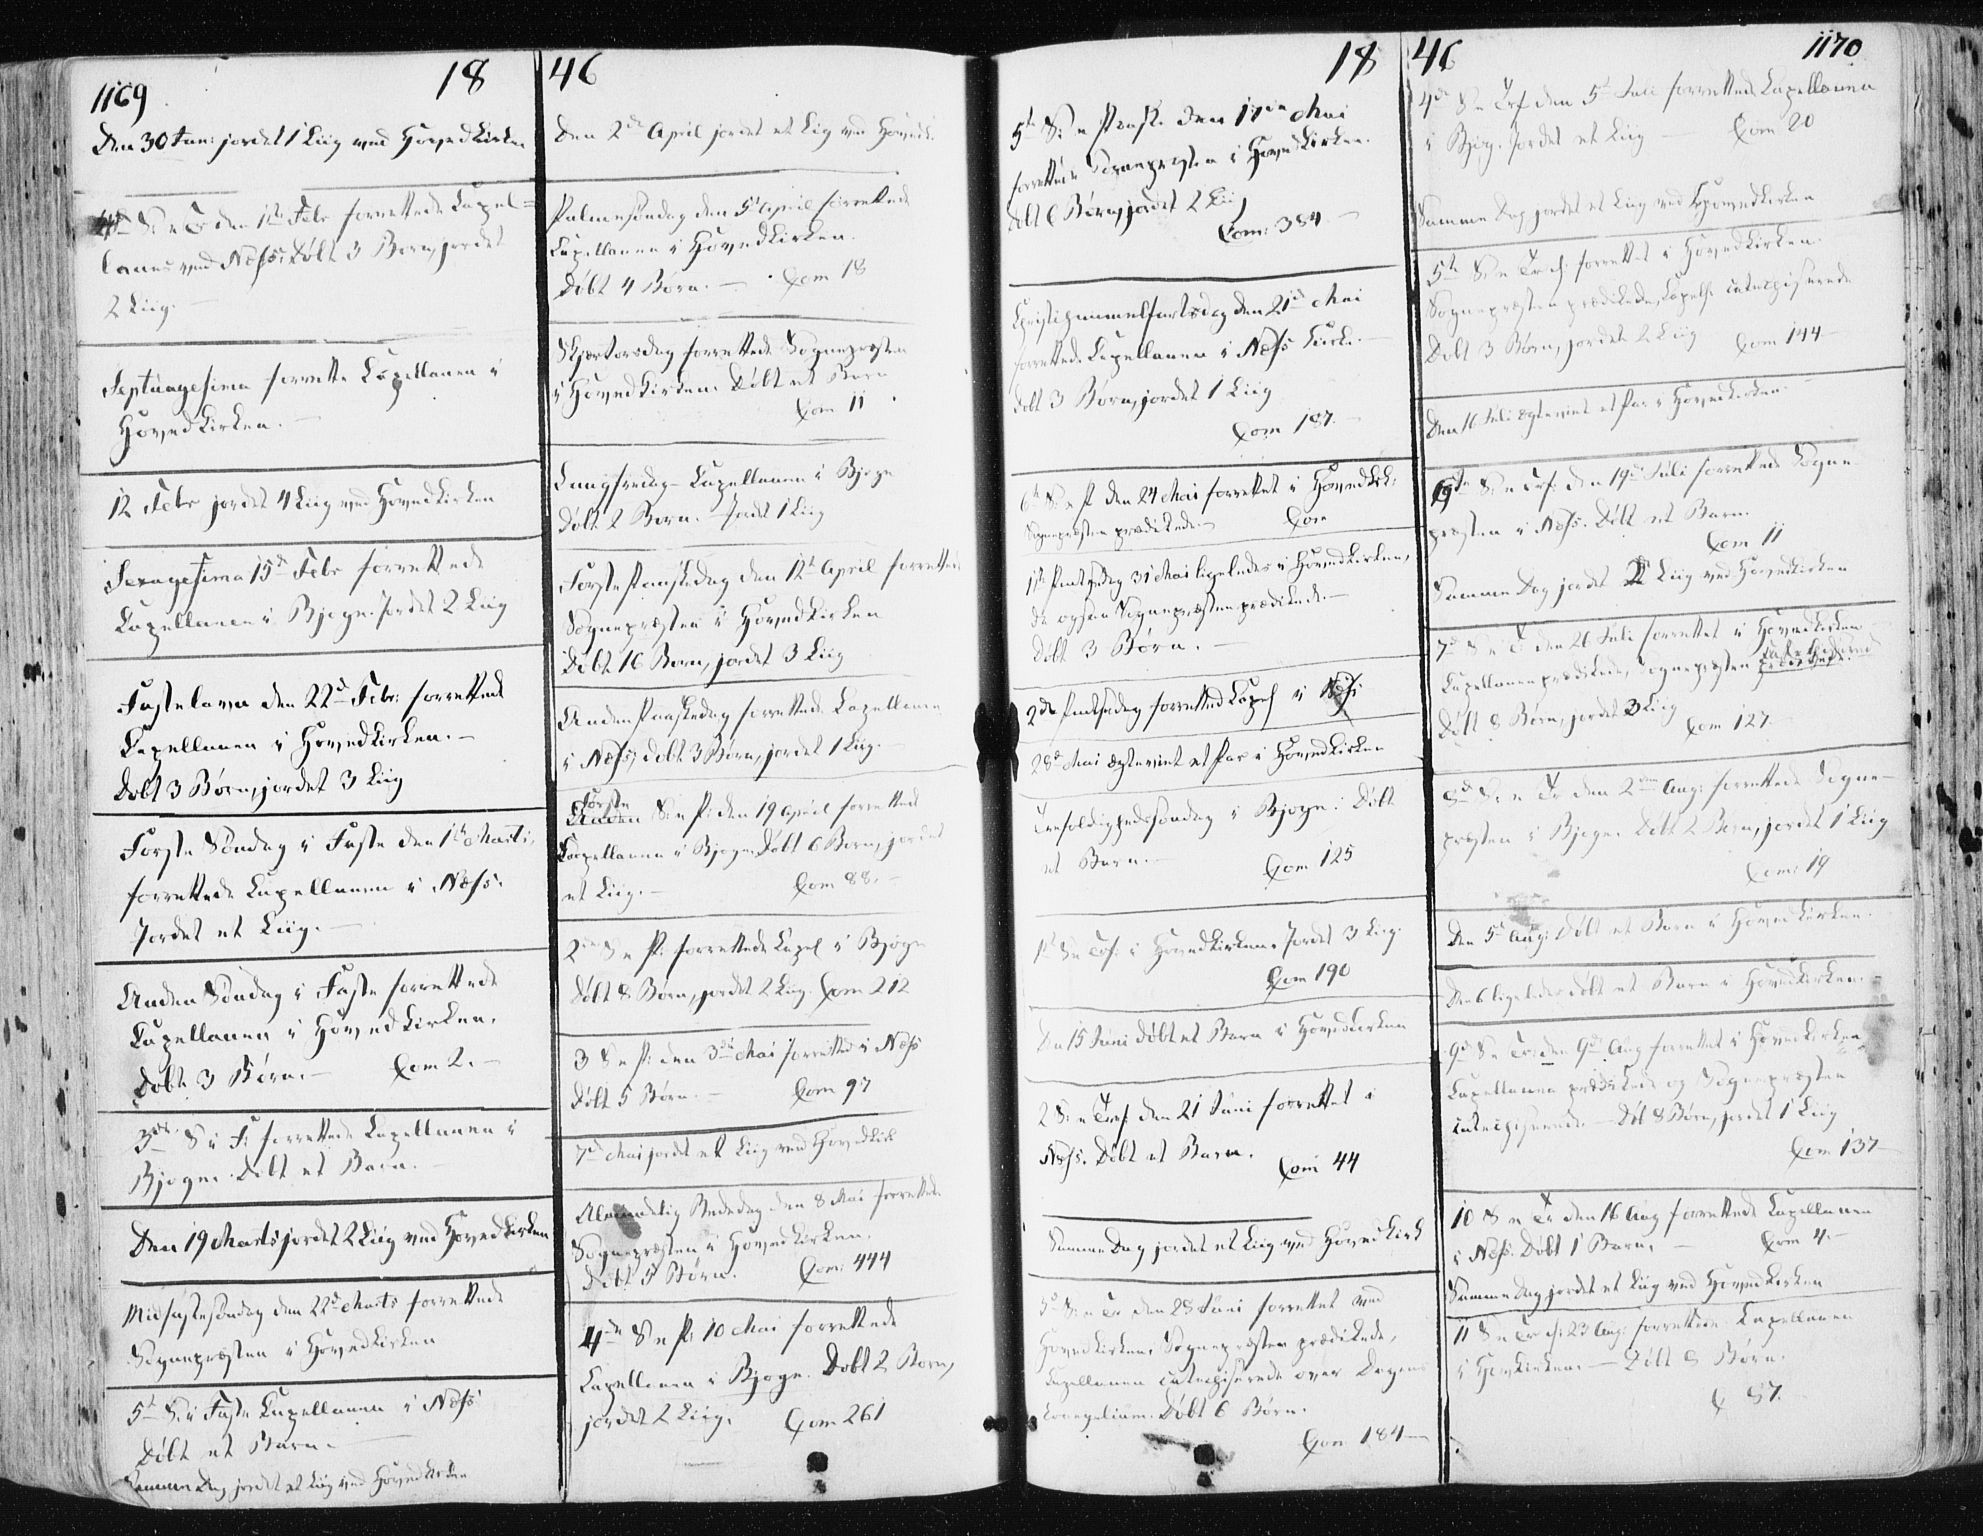 1169
18
46
Den 30 Jan: jordet 1 Liig ved Hovedkirken
4de S: e H3K den 1ste Febr forrettede Capel=
lanen ved Næss. Døbt 3 Børn, jordet
2 Liig. —
Septuagesima forrette Capellanen i
Hovedkirken. —
12 Febr jordet 4 Liig ved Hovedkirken
Sexagesima 15de Febr forrettede
Capellanen i Bjogn. Jordet 2 Liig
Fastelavn den 22de Febr: forrettede
Capellanen i Hovedkirken. —
Døbt 3 Børn, jordet 3 Liig
Første Søndag i Faste den 1ste Marts,
forrettede Capellanen i Næss.
Jordet et Liig. —
Anden Søndag i Faste forrettede
Capellanen i Hovedkirken.
Døbt 3 Børn. — Com 2. —
3de S i F: forrettede Capellanen i
Bjogn. Døbt et Barn. —
Den 19 Marts jordet 2 Liig ved Hovedkirken
Midfastesøndag den 22de Marts forrettede
Sognepræsten i Hovedkirken
5te S: i Faste Capellanen i Næss
Døbt et Barn. —
Samme Dag jordet et Liig ved Hovedkirken
Den 2de April jordet et Liig ved Hovedk.
Palmesøndag den 5te April forrettede
Capellanen i Hovedkirken.
Døbt 4 Børn. — Com 18
Skjærtorsdag forrettede Sognepræsten
i Hovedkirken. Døbt et Barn
Com 11
Langfredag Capellanen i Bjogn
Døbt 2 Børn. Jordet 1 Liig
Første Paaskedag den 12te April forrettede
Sognepræsten i Hovedkirken
Døbt 16 Børn, jordet 3 Liig
Anden Paaskedag forrettede Capellanen
i Næss, døbt 3 Børn, jordet 1 Liig.
Første
Anden S: e P: den 19 April forrettede
Capellanen i Bjogn. Døbt 6 Børn, jordet
et Liig. — Com 88. —
2den S e P: forrettede Capel i Bjogn
Døbt 8 Børn, jordet 2 Liig. Com 212
3 S e P: den 3die Mai forrettet i Næss
Døbt 5 Børn. — Com 97
7de Mai jordet et Liig ved Hovedkirk
Almindelig Bededag den 8 Mai forrettede
Sognepræsten i Hovedkirken.
Døbt 5 Børn. Com: 444
4de S e P: 10 Mai forrettede
Capellanen i Bjogn. Døbt 2 Børn,
jordet 2 Liig. Com 261
18
46
1170
5te S: e Paask. den 17de Mai
forrettede Sognepræsten i Hovedkirken.
Døbt 6 Børn, jordet 2 Liig
Com: 384 —
Christi himmelfartsdag den 21de Mai
forrettede Capellanen i Næss Kirke. —
Døbt 3 Børn, jordet 1 Liig
Com 187. —
6te S: e P den 24 Mai forrettet i Hovedkirk:
Sognepræsten prædikede. — Com
1ste Pintsedag 31 Mai ligeledes i Hovedkirken,
da ogsaa Sognepræsten prædikede. —
Døbt 3 Børn. —
2den Pintsedag forrettede Capel i Næss
28de Mai ægteviet et Par i Hovedkirken
Trefoldighedssøndag i Bjogn. Døbt
et Barn. — Com 125
1ste S e Tref. i Hovedkirken. Jordet 3 Liig.
Com 190
Den 15 Juni døbt et Barn i Hovedkirken
2 S: e Tref den 21 Juni forrettet i
Næss. Døbt et Barn. Com 44
Samme Dag jordet et Liig ved Hovedkirk
3de S: e Tr den 28 Juni forrettet ved
Hovedkirken. Sognepræsten prædikede,
Capellanen catechiserede over Dagens
Evangelium. Døbt 6 Børn.
Com 184 —
4de S e Tref den 5te Juli forrettede Capellanen
i Bjog. Jordet et Liig — Com 20
Samme Dag jordet et Liig ved Hovedkirken
5te S: e Tref: forrettet i Hovedkirken.
Sognepræsten prædikede, Capell. catechiserede
Døbt 3 Børn, jordet 2 Liig Com 144 —
Den 16 Juli ægteviet et Par i Hovedkirken. —
6te S: e Tref: den 19de Juli forrettede Sogne-
præsten i Næss. Døbt et Barn.
Com 11
Samme Dag jordet 2 Liig ved Hovedkirken
7de S e T den 26 Juli forrettet i Hovedkirken
Capellanen prædikede, Sognepræsten catechiserede
Døbt 8 Børn, jordet 3 Liig Com 127
8de S: e Tr den 2den Aug: forrettede Sogne-
præsten i Bjogn. Døbt 2 Børn, jordet 1 Liig
Com: 19
Den 5te Aug: Døbt et Barn i Hovedkirken.
Den 6 ligeledes døbt et Barn i Hovedkirken.
9de S e Tr: den 9de Aug forrettet i Hovedkirken
Capellanen prædikede og Sognepræsten
catechiserede. — Døbt 8 Børn, jordet 1 Liig
Com 137
10 S e Tr den 16 Aug forrettede Capellanen
i Næss. Døbt 1 Barn. — Com 4. —
Samme Dag jordet et Liig ved Hovedkirken
11 S e Tref: 23 Aug: forrettede Capellanen
i Hovedkirken. — Døbt 8 Børn.
C 87.